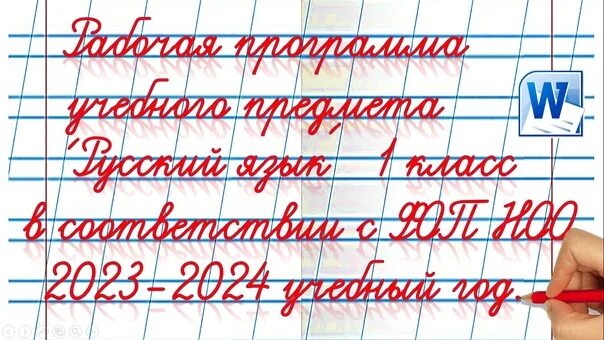 Рабочая программа
учебного предмета
"Русский язык" 1 класс
в соответствии с ФОП НОО
2023-2024 учебный год.
W